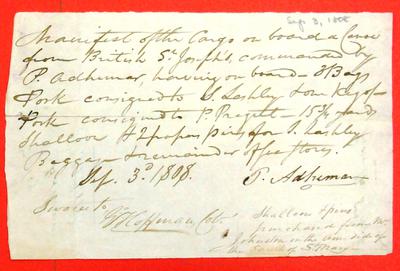 Sep 3, 1808
Manifest of the Cargo on board a Canoe
from British St. Joseph's, commanded by
P. Adhemar, having on board - 8 Bags
Pork consigned to S. Lashly & one Keg of
Pork consigned to P. - 15½ yards
Shalloon & 2 pins for S. Lashly
Baggage & remainder of sea stores.
Sep. 3d. 1808. P. Adhemar
Sworn to
Hoffman Colr.
Shalloon & pins
purchased from Mr.
Johnston on the Am. side of
the of St. Mary